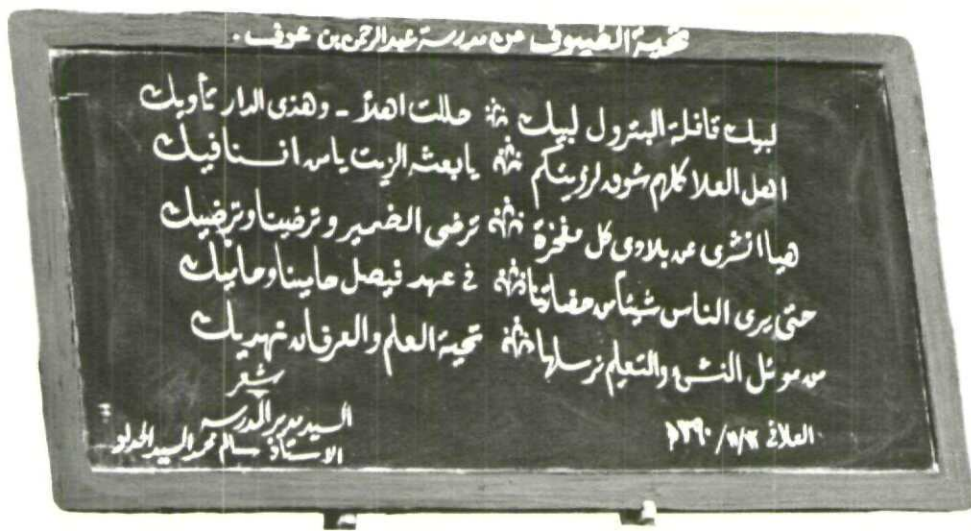 تحية الضيوف من مدرسة عبدالرحمن بن عوف .
لبيك قافلة البترول لبيك ** حللت اهلاً - وهذى الدار تأويك
اهل العلا كلهم شوق لرؤيتكم ** يا بعثة الزيت يا من افــنا فيك
هيا انشرى عن بلادى كل مفخرة ** ترضى الضمير وترضينا وترضيك
حتى يرى الناس شيئاً من حضارتنا ** فى عهد فيصل حامينا وحاميك
من موئل النشئ والتعليم نرسلها ** تحية العلم والعرفان نهديك
شعر
السيد مدير المدرسه
الاستاذ سالم محمد السيد
العلا فى /١١/ ١٣٩٠هـ